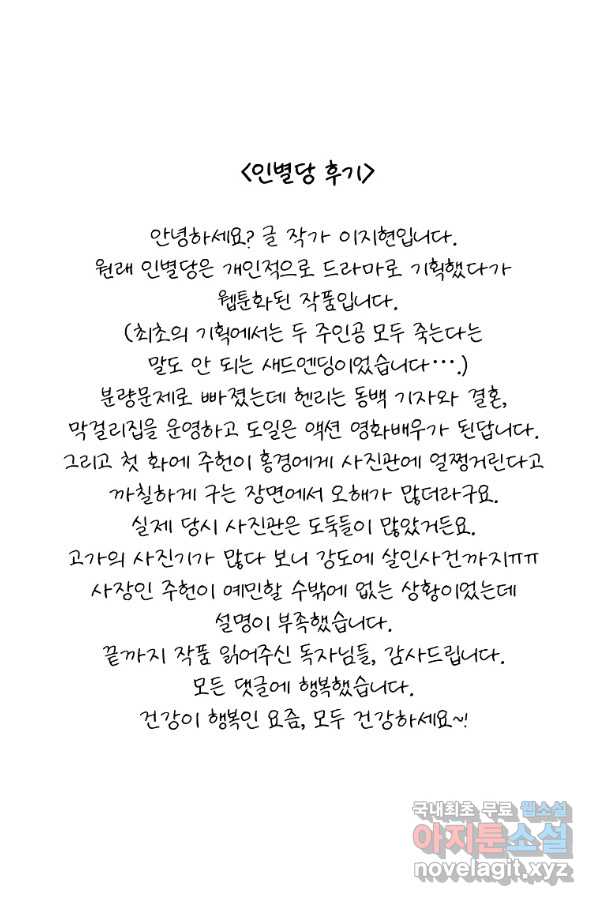 <인별당 후기>
안녕하세요? 글 작가 이지현입니다.
원래 인별당은 개인적으로 드라마로 기획했다가
웹툰화된 작품입니다.
(최초의 기획에서는 두 주인공 모두 죽는다는
말도 안 되는 새드엔딩이었습니다….)
분량문제로 빠졌는데 헨리는 동백 기자와 결혼,
막걸리집을 운영하고 도일은 액션 영화배우가 된답니다.
그리고 첫 화에 주헌이 홍경에게 사진관에 얼쩡거린다고
까칠하게 구는 장면에서 오해가 많더라구요.
실제 당시 사진관은 도둑들이 많았거든요.
고가의 사진기가 많다 보니 강도에 살인사건까지ㅠㅠ
사장인 주헌이 예민할 수밖에 없는 상황이었는데
설명이 부족했습니다.
끝까지 작품 읽어주신 독자님들, 감사드립니다.
모든 댓글에 행복했습니다.
건강이 행복인 요즘, 모두 건강하세요~!
국내최초 무료 웹소설
아지툰소설
novelagit.xyz